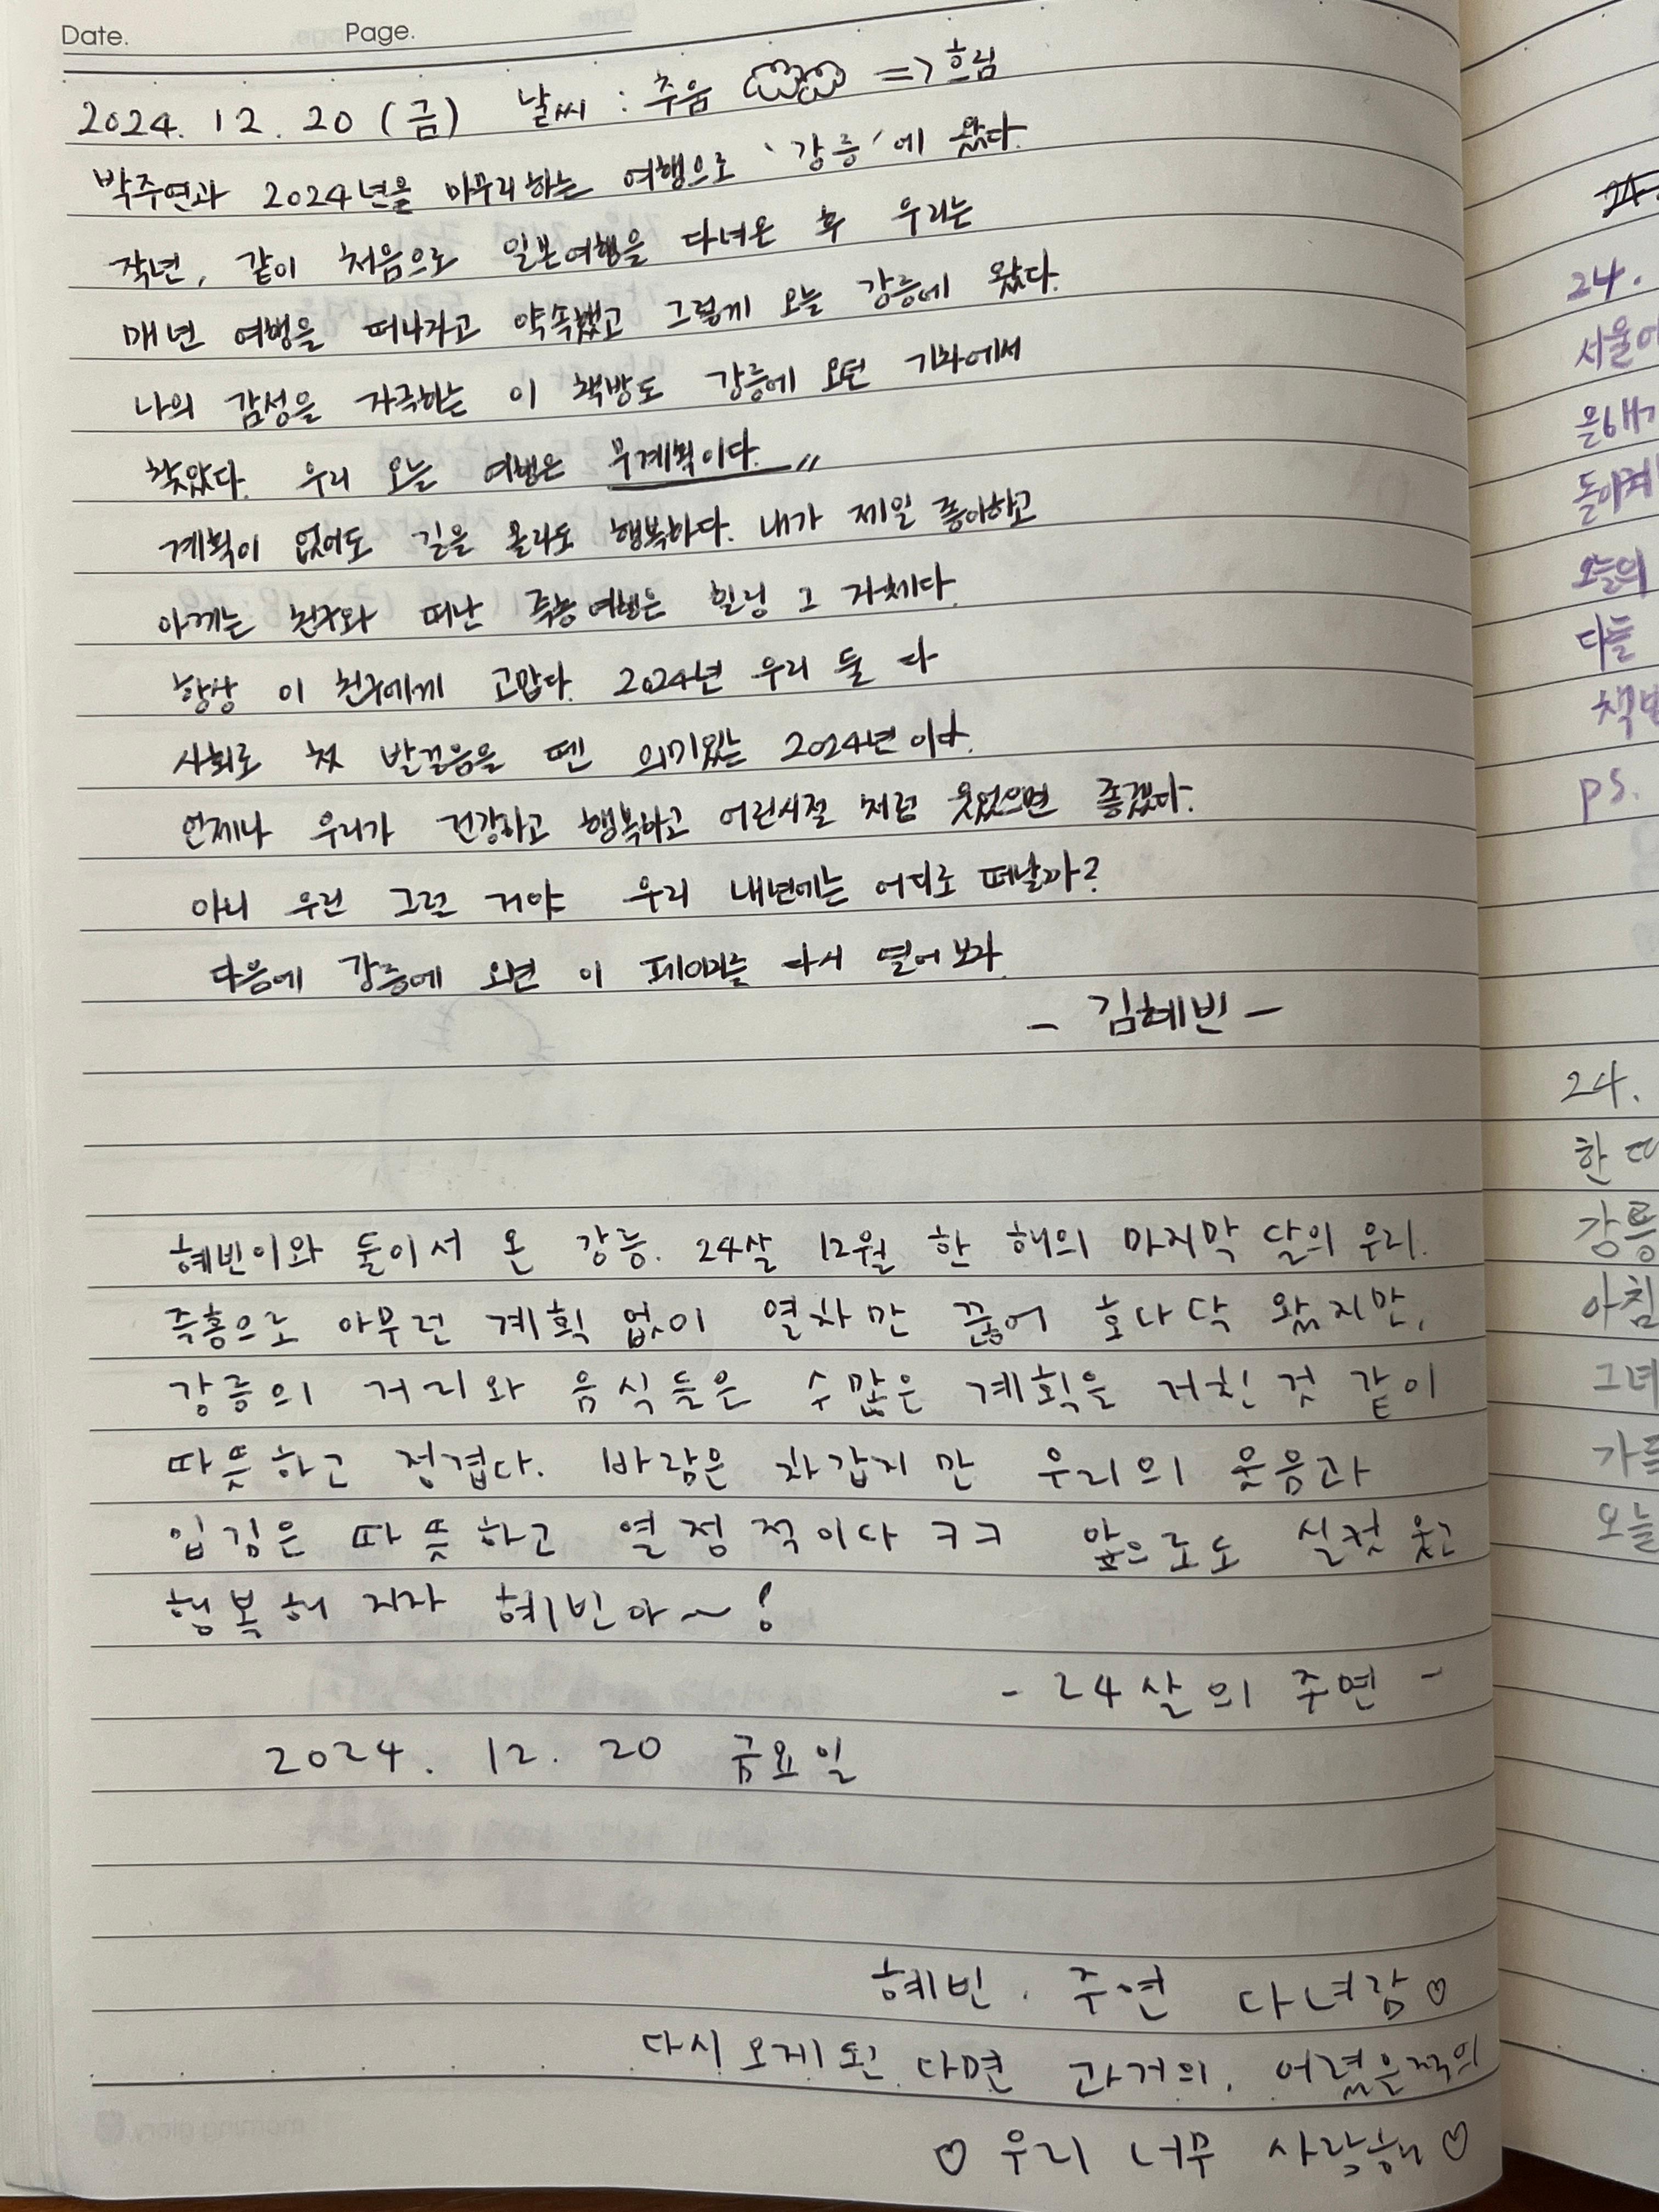 Date. Page.
2024. 12. 20 (금) 날씨 : 추움 => 흐림
박주연과 2024년을 마무리하는 여행으로 '강릉'에 왔다.
작년, 같이 처음으로 일본여행을 다녀온 후 우리는
매년 여행을 떠나자고 약속했고 그렇게 오늘 강릉에 왔다.
나의 감성을 자극하는 이 책방도 강릉에 오던 기차에서
찾았다. 우리 오늘 여행은 무계획이다.
계획이 없어도 길을 몰라도 행복하다. 내가 제일 좋아하고
아끼는 친구와 떠난 즉흥여행은 힐링 그 자체다.
항상 이 친구에게 고맙다. 2024년 우리 둘 다
사회로 첫 발걸음을 뗀 의미있는 2024년이다.
언제나 우리가 건강하고 행복하고 어린시절 처럼 웃었으면 좋겠다.
아니 우린 그럴 거야 우리 내년에는 어디로 떠날까?
다음에 강릉에 오면 이 페이지를 다시 열어보자.
- 김혜빈 -
혜빈이와 둘이서 온 강릉. 24살 12월 한 해의 마지막 달의 우리.
즉흥으로 아무런 계획 없이 열차만 끊어 호다닥 왔지만,
강릉의 거리와 음식들은 수많은 계획을 거친 것 같이
따뜻하고 정겹다. 바람은 차갑지만 우리의 웃음과
입김은 따뜻하고 열정적이다 ㅋㅋ 앞으로도 실컷 웃고
행복해지자 혜빈아~!
- 24살의 주연 -
2024. 12. 20 금요일
혜빈. 주연 다녀감♡
다시 오게 된다면 과거의, 어렸을적의
♡ 우리 너무 사랑해 ♡
24.
서울
돌아
오늘의
다들
ps.
24.
한
강릉
아침
그녀
오늘